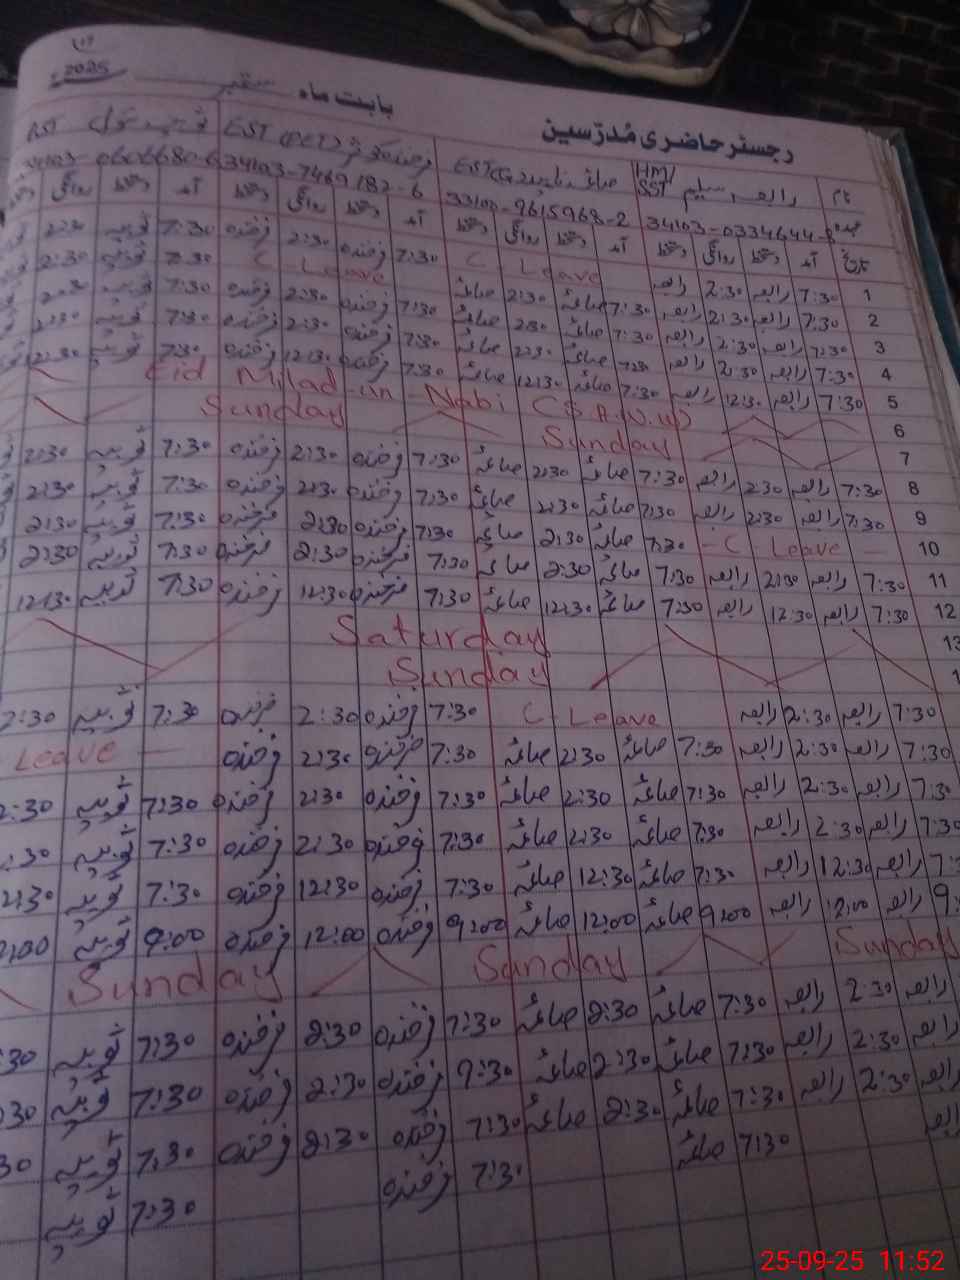 2025
رجسٹر حاضری مُدرّسین بابت ماہ ستمبر
نام رابعہ سلیم HM/SST صائمہ EST فرخندہ EST
عہدہ 34103-0334644-8 33100-9615968-2 34103-7469182-6 34103-0606680-6
تاریخ آمد دستخط روانگی دستخط آمد دستخط روانگی دستخط آمد دستخط روانگی دستخط آمد دستخط روانگی دستخط
1 7:30 رابعہ 2:30 رابعہ C Leave 7:30 فرخندہ 2:30 فرخندہ 7:30 2:30
2 7:30 رابعہ 2:30 رابعہ 7:30 صائمہ 2:30 صائمہ C Leave 7:30 2:30
3 7:30 رابعہ 2:30 رابعہ 7:30 صائمہ 2:30 صائمہ 7:30 فرخندہ 2:30 فرخندہ 7:30 2:30
4 7:30 رابعہ 2:30 رابعہ 7:30 صائمہ 2:30 صائمہ 7:30 فرخندہ 2:30 فرخندہ 7:30 2:30
5 7:30 رابعہ 12:30 رابعہ 7:30 صائمہ 12:30 صائمہ 7:30 فرخندہ 12:30 فرخندہ 7:30 12:30
6 Eid Milad-un-Nabi (S.A.W.W)
7 Sunday Sunday
8 7:30 رابعہ 2:30 رابعہ 7:30 صائمہ 2:30 صائمہ 7:30 فرخندہ 2:30 فرخندہ 7:30 2:30
9 7:30 رابعہ 2:30 رابعہ 7:30 صائمہ 2:30 صائمہ 7:30 فرخندہ 2:30 فرخندہ 7:30 2:30
10 - C - Leave - 7:30 صائمہ 2:30 صائمہ 7:30 فرخندہ 2:30 فرخندہ 7:30 2:30
11 7:30 رابعہ 2:30 رابعہ 7:30 صائمہ 2:30 صائمہ 7:30 فرخندہ 2:30 فرخندہ 7:30 2:30
12 7:30 رابعہ 12:30 رابعہ 7:30 صائمہ 12:30 صائمہ 7:30 فرخندہ 12:30 فرخندہ 7:30 12:30
13 Saturday
1 Sunday
7:30 رابعہ 2:30 رابعہ C - Leave 7:30 فرخندہ 2:30 فرخندہ 7:30 2:30
7:30 رابعہ 2:30 رابعہ 7:30 صائمہ 2:30 صائمہ 7:30 فرخندہ 2:30 فرخندہ Leave -
7:30 رابعہ 2:30 رابعہ 7:30 صائمہ 2:30 صائمہ 7:30 فرخندہ 2:30 فرخندہ 7:30 2:30
7:30 رابعہ 2:30 رابعہ 7:30 صائمہ 2:30 صائمہ 7:30 فرخندہ 2:30 فرخندہ 7:30 :30
7: رابعہ 12:30 رابعہ 7:30 صائمہ 12:30 صائمہ 7:30 فرخندہ 12:30 فرخندہ 7:30 12:30
9: رابعہ 12:00 رابعہ 9:00 صائمہ 12:00 صائمہ 9:00 فرخندہ 12:00 فرخندہ 9:00 2:00
Sunday Sunday Sunday
رابعہ 2:30 رابعہ 7:30 صائمہ 2:30 صائمہ 7:30 فرخندہ 2:30 فرخندہ 7:30 :30
رابعہ 2:30 رابعہ 7:30 صائمہ 2:30 صائمہ 9:30 فرخندہ 2:30 فرخندہ 7:30 :30
رابعہ 2:30 رابعہ 7:30 صائمہ 2:30 صائمہ 7:30 فرخندہ 2:30 فرخندہ 7:30 30
رابعہ 7:30 صائمہ 7:30 فرخندہ 7:30
25-09-25 11:52